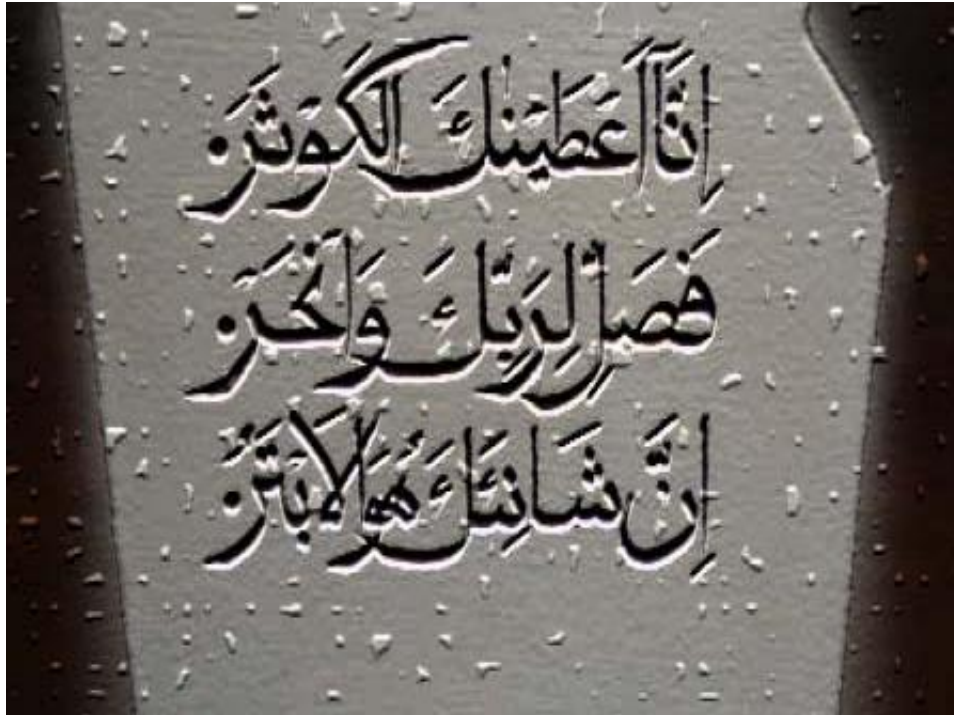 اِنَّآ اَعَطَیۡنٰكَ الۡكَوۡثَرَ۰
فَصَلِّ لِرَبِّكَ وَ انۡحَرۡ۰
اِنَّ شَانِئَكَ هُوَ الۡاَبۡتَرُ۰